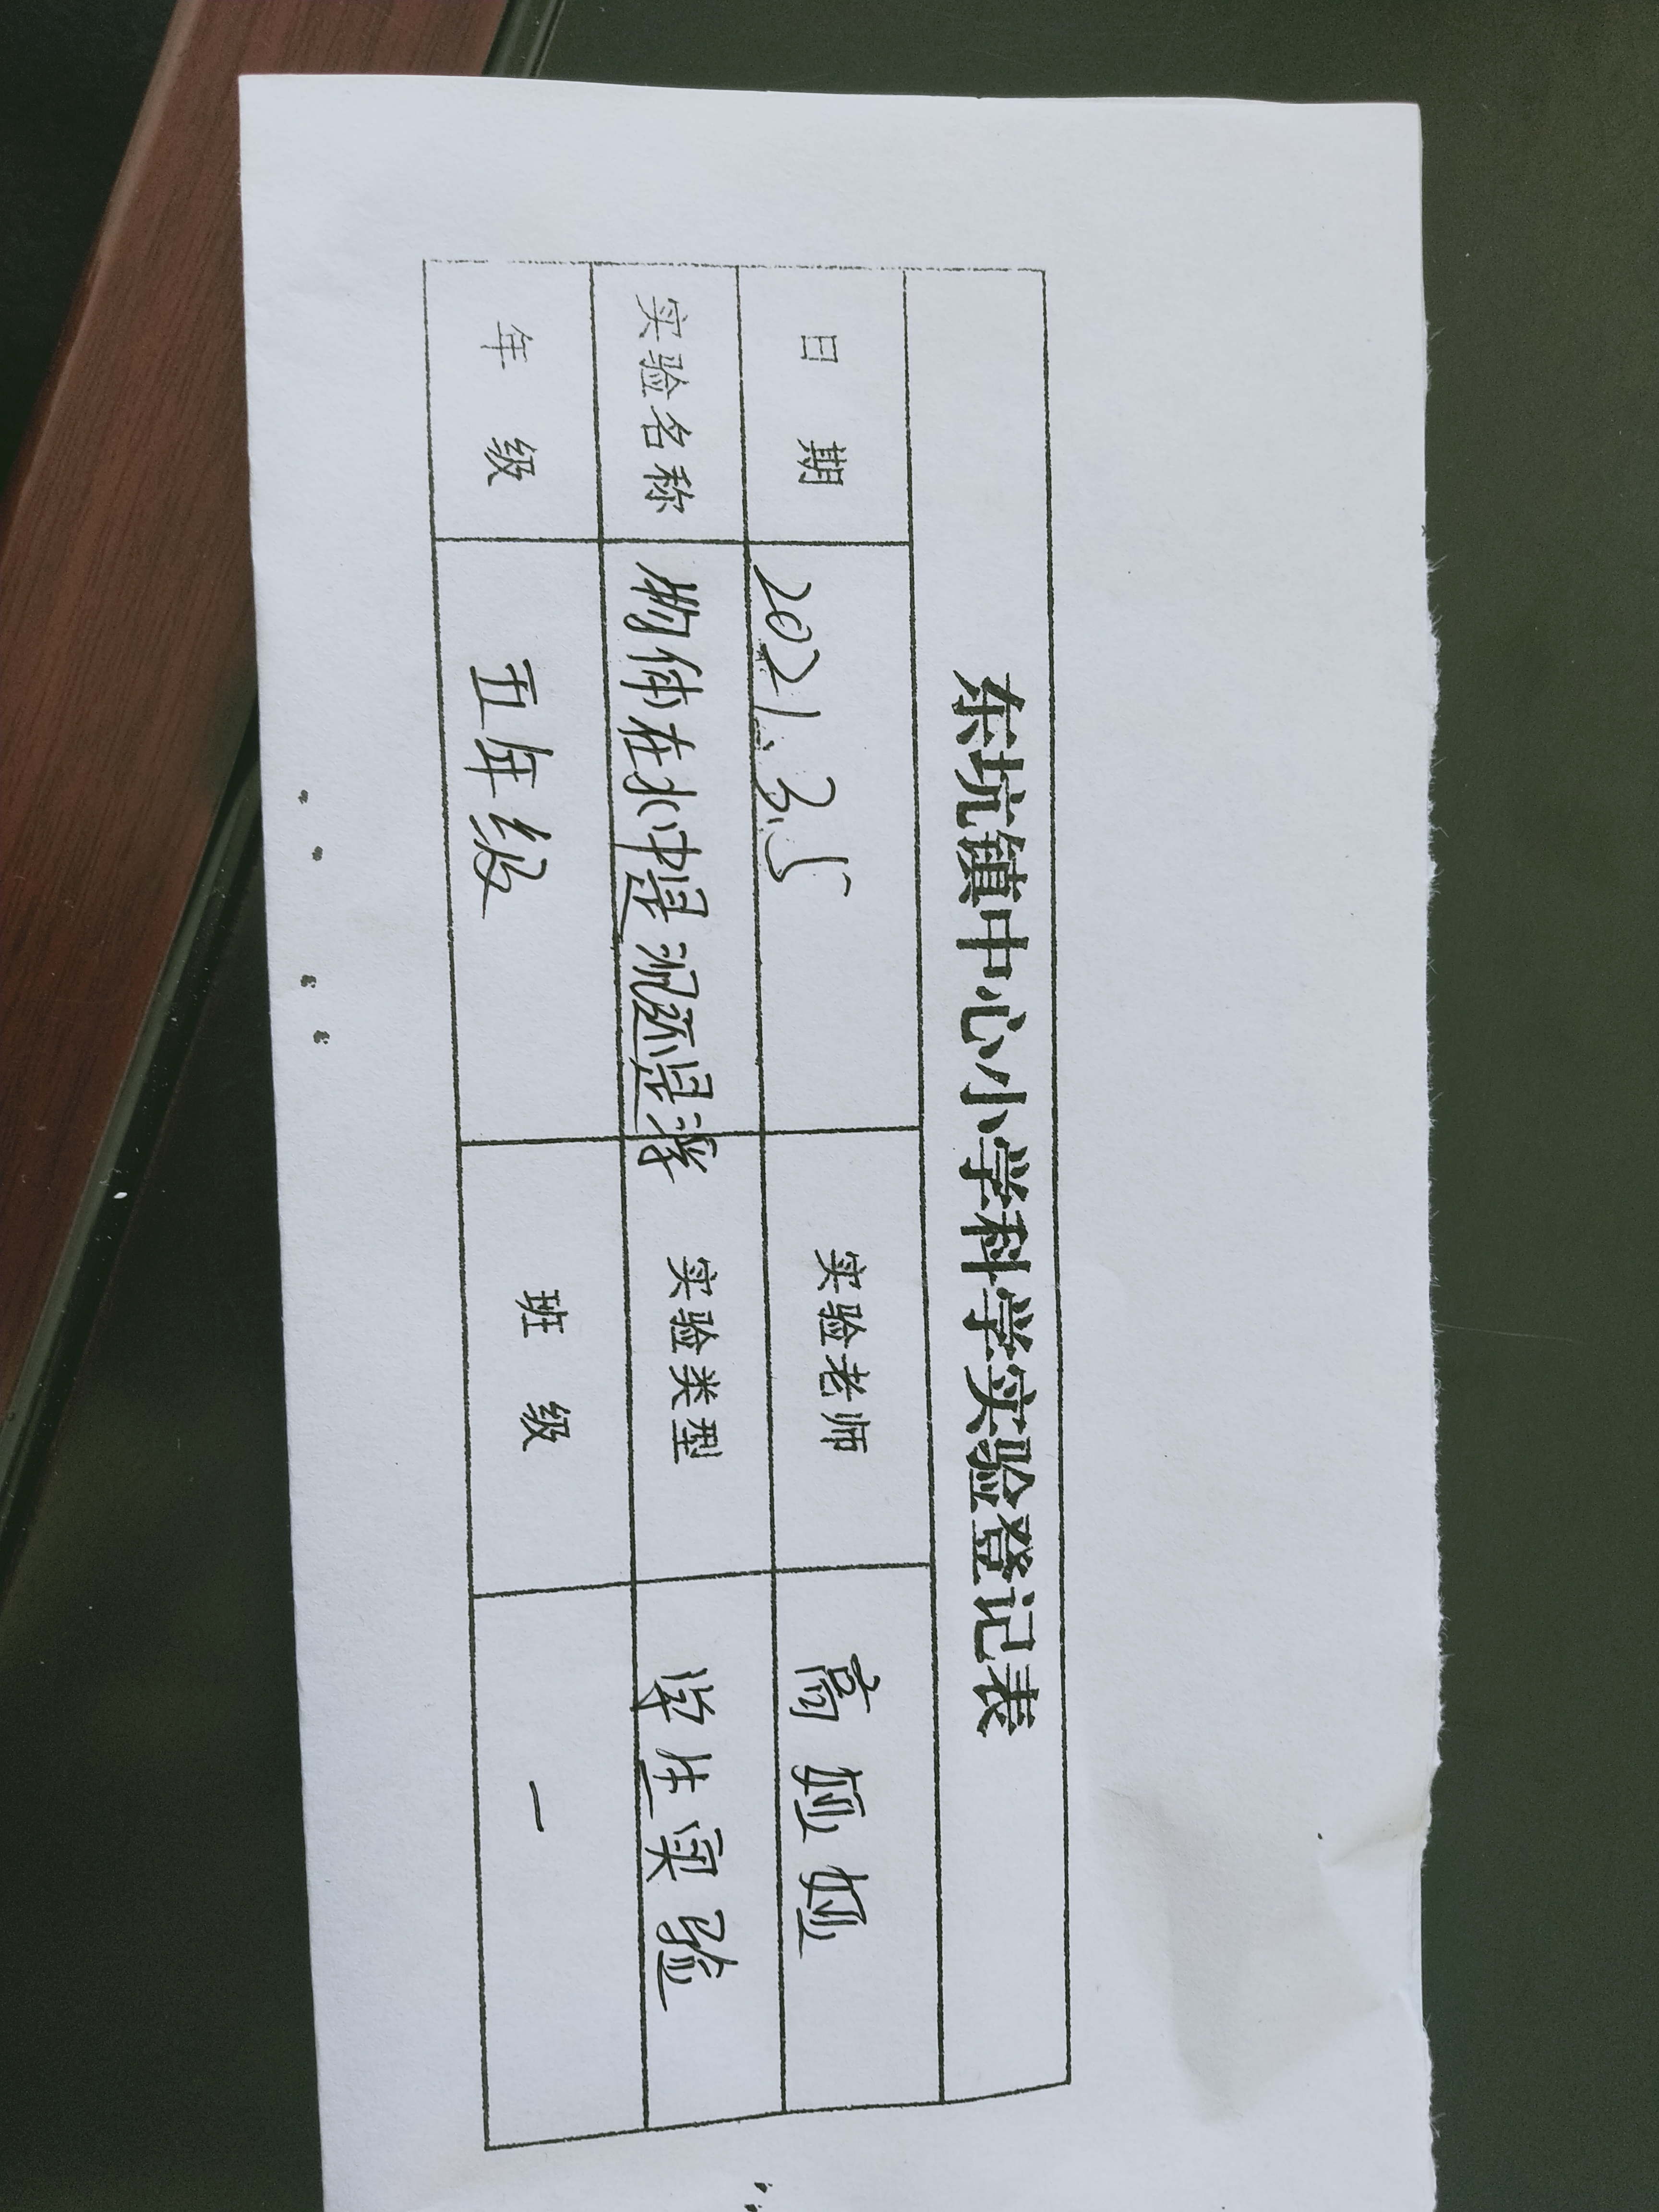 东坑镇中心小学科学实验登记表
日 期 2021.3.5 实验老师 高娅娅
实验名称 物体在水中是沉还是浮 实验类型 学生实验
年 级 五年级 班 级 一